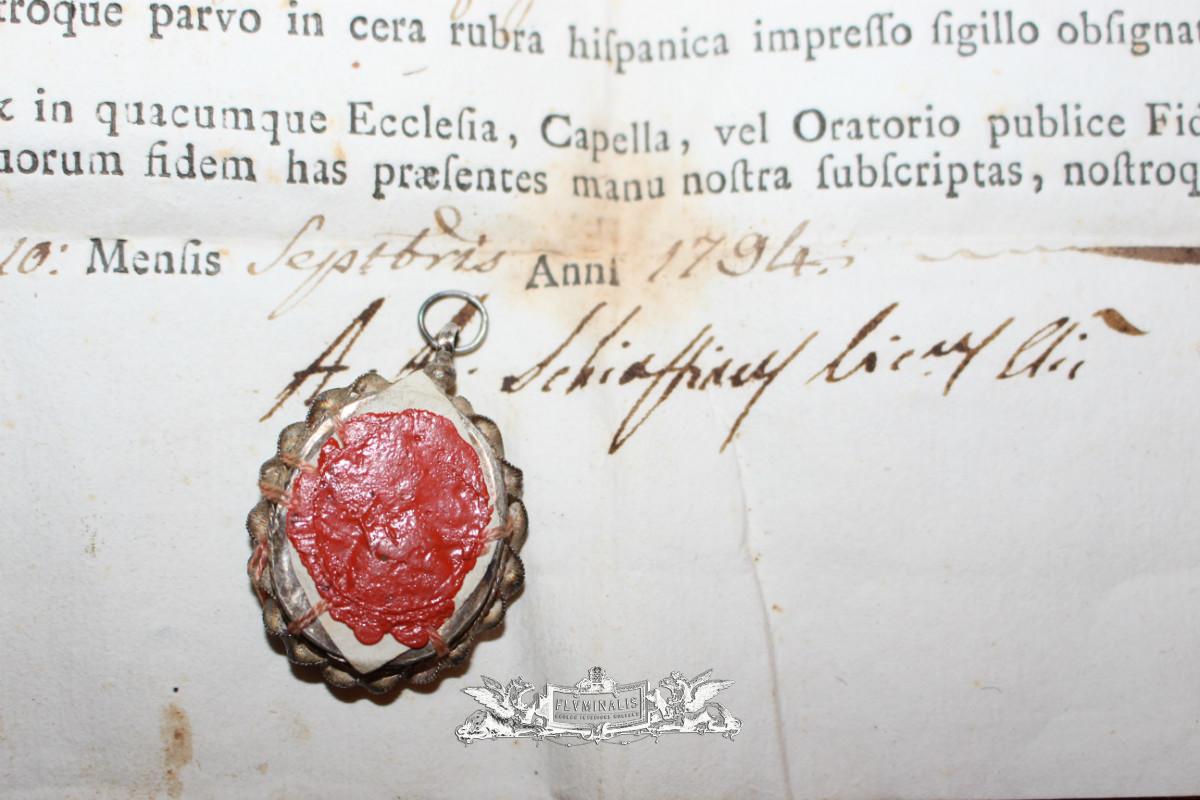 troque parvo in cera rubra hiſpanica impreſſo ſigillo obſignat
& in quacumque Eccleſia, Capella, vel Oratorio publice Fid
uorum fidem has præſentes manu noſtra ſubſcriptas, noſtroq
10: Menſis Septbris Anni 1794.
A. Schiaffiney
FLVMINALIS